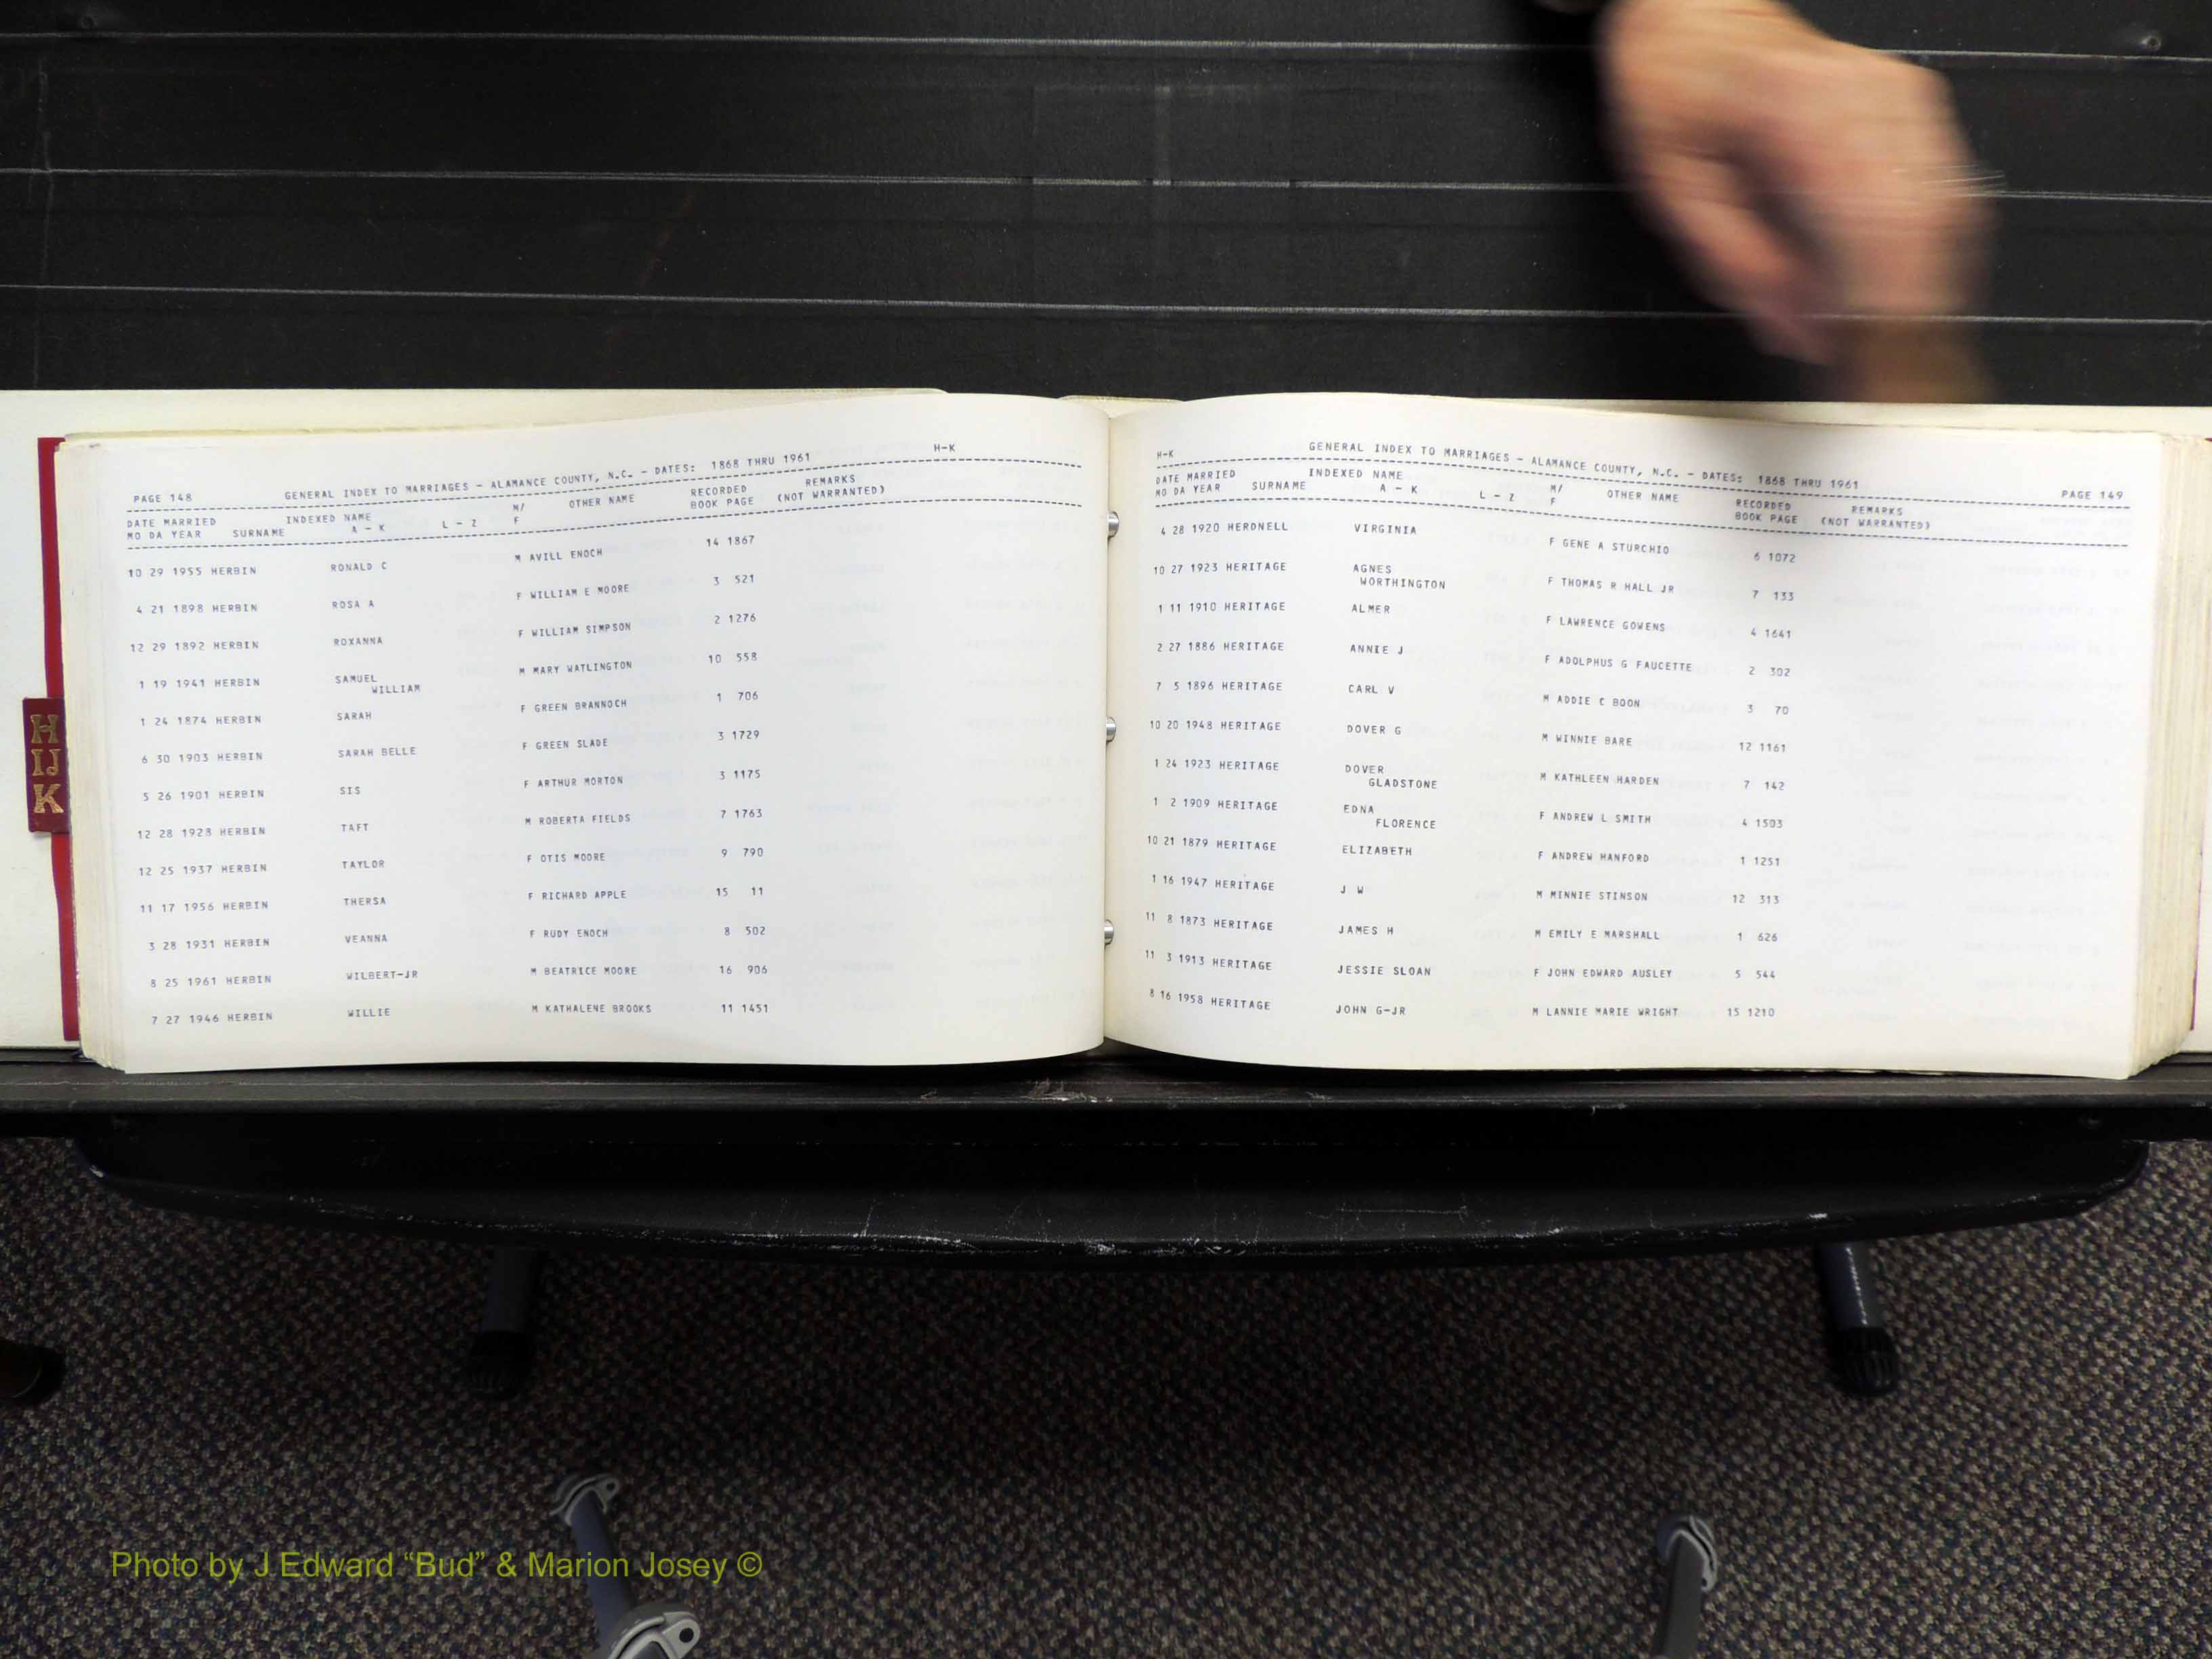 PAGE 148 GENERAL INDEX TO MARRIAGES - ALAMANCE COUNTY, N.C. - DATES: 1868 THRU 1961 H-K
DATE MARRIED INDEXED NAME M/ OTHER NAME RECORDED REMARKS
MO DA YEAR SURNAME A - K L - Z F BOOK PAGE (NOT WARRANTED)
10 29 1955 HERBIN RONALD C M AVILL ENOCH 14 1867
4 21 1898 HERBIN ROSA A F WILLIAM E MOORE 3 521
12 29 1892 HERBIN ROXANNA F WILLIAM SIMPSON 2 1276
1 19 1941 HERBIN SAMUEL M MARY WATLINGTON 10 558
WILLIAM
1 24 1874 HERBIN SARAH F GREEN BRANNOCH 1 706
6 30 1903 HERBIN SARAH BELLE F GREEN SLADE 3 1729
5 26 1901 HERBIN SIS F ARTHUR MORTON 3 1175
12 28 1928 HERBIN TAFT M ROBERTA FIELDS 7 1763
12 25 1937 HERBIN TAYLOR F OTIS MOORE 9 790
11 17 1956 HERBIN THERSA F RICHARD APPLE 15 11
3 28 1931 HERBIN VEANNA F RUDY ENOCH 8 502
8 25 1961 HERBIN WILBERT-JR M BEATRICE MOORE 16 906
7 27 1946 HERBIN WILLIE M KATHALENE BROOKS 11 1451
H-K GENERAL INDEX TO MARRIAGES - ALAMANCE COUNTY, N.C. - DATES: 1868 THRU 1961 PAGE 149
DATE MARRIED INDEXED NAME M/ OTHER NAME RECORDED REMARKS
MO DA YEAR SURNAME A - K L - Z F BOOK PAGE (NOT WARRANTED)
4 28 1920 HERDNELL VIRGINIA F GENE A STURCHIO 6 1072
10 27 1923 HERITAGE AGNES F THOMAS R HALL JR 7 133
WORTHINGTON
1 11 1910 HERITAGE ALMER F LAWRENCE GOWENS 4 1641
2 27 1886 HERITAGE ANNIE J F ADOLPHUS G FAUCETTE 2 302
7 5 1896 HERITAGE CARL V M ADDIE C BOON 3 70
10 20 1948 HERITAGE DOVER G M WINNIE BARE 12 1161
1 24 1923 HERITAGE DOVER M KATHLEEN HARDEN 7 142
GLADSTONE
1 2 1909 HERITAGE EDNA F ANDREW L SMITH 4 1503
FLORENCE
10 21 1879 HERITAGE ELIZABETH F ANDREW HANFORD 1 1251
1 16 1947 HERITAGE J W M MINNIE STINSON 12 313
11 8 1873 HERITAGE JAMES H M EMILY E MARSHALL 1 626
11 3 1913 HERITAGE JESSIE SLOAN F JOHN EDWARD AUSLEY 5 544
8 16 1958 HERITAGE JOHN G-JR M LANNIE MARIE WRIGHT 15 1210
H
IJ
K
Photo by J Edward “Bud” & Marion Josey ©